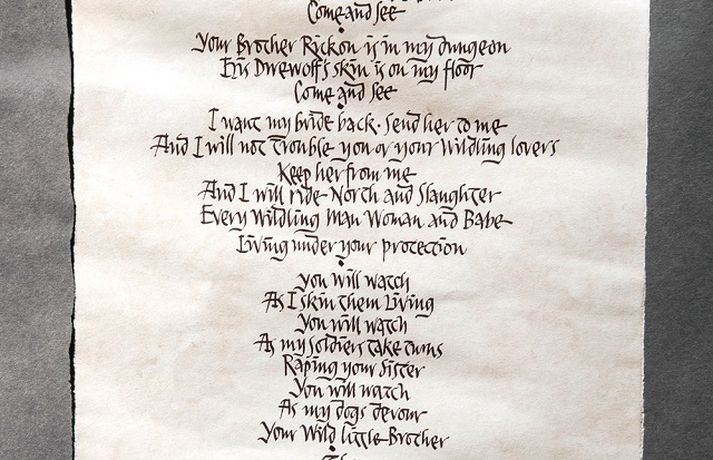 Come and see
Your Brother Rickon is in my dungeon
His Direwolf's skin is on my floor
Come and see
I want my bride back. Send her to me
And I will not trouble you or your Wildling lovers
Keep her from me
And I will ride North and Slaughter
Every Wildling Man Woman and Babe
Living under your protection
You will watch
As I skin them Living
You will watch
As my soldiers take turns
Raping your sister
You will watch
As my dogs devour
Your Wild little Brother